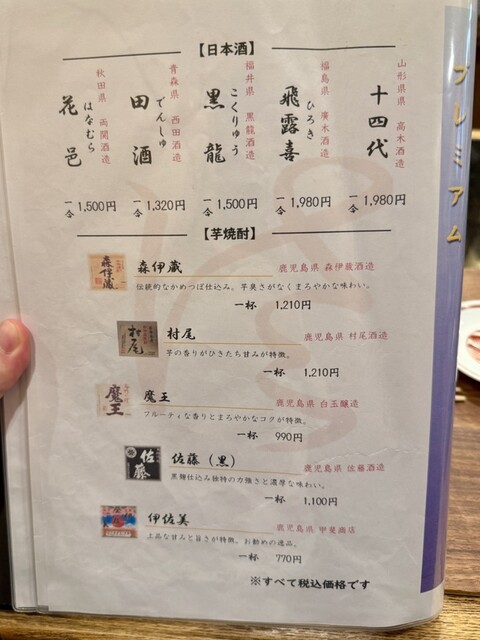 プレミアム
【日本酒】
山形県県 高木酒造
十四代
一合 1,980円
福島県 廣木酒造
ひろき
飛露喜
一合 1,980円
福井県 黒龍酒造
こくりゅう
黒龍
一合 1,500円
青森県 西田酒造
でんしゅ
田酒
一合 1,320円
秋田県 両関酒造
はなむら
花邑
一合 1,500円
【芋焼酎】
森伊蔵 鹿児島県 森伊蔵酒造
伝統的なかめつぼ仕込み。芋臭さがなくまろやかな味わい。
一杯 1,210円
村尾 鹿児島県 村尾酒造
芋の香りがひきたち甘みが特徴。
一杯 1,210円
魔王 鹿児島県 白玉醸造
フルーティな香りとまろやかなコクが特徴。
一杯 990円
佐藤（黒） 鹿児島県 佐藤酒造
黒麹仕込み独特の力強さと濃厚な味わい。
一杯 1,100円
伊佐美 鹿児島県 甲斐商店
上品な甘みと旨さが特徴。お勧めの逸品。
一杯 770円
※すべて税込価格です
森伊蔵
村尾
魔王
佐藤